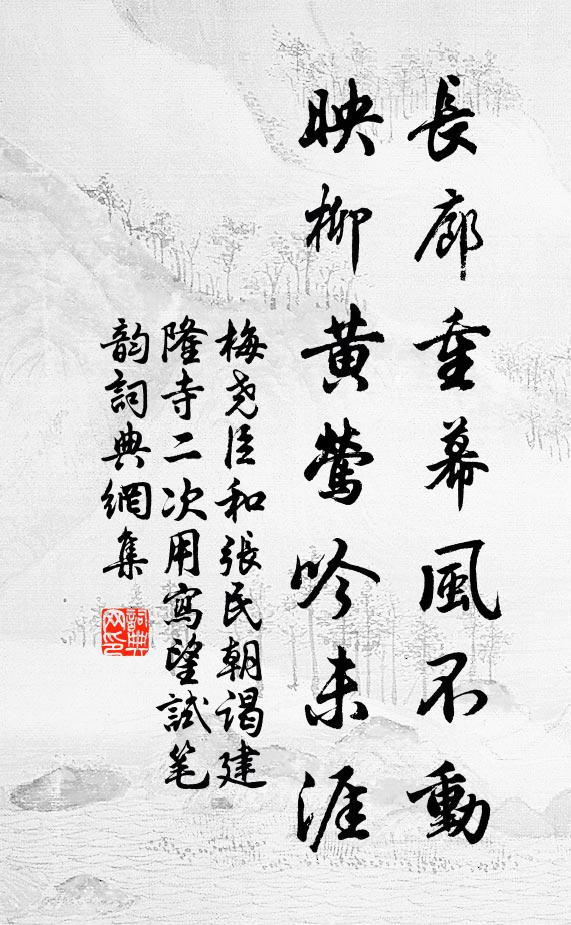 長廊重幕風不動
映柳黃鶯吟未涯
梅尧臣和張民朝谒建
隆寺二次用寫望試笔
韵詞典網集
詞典
网印